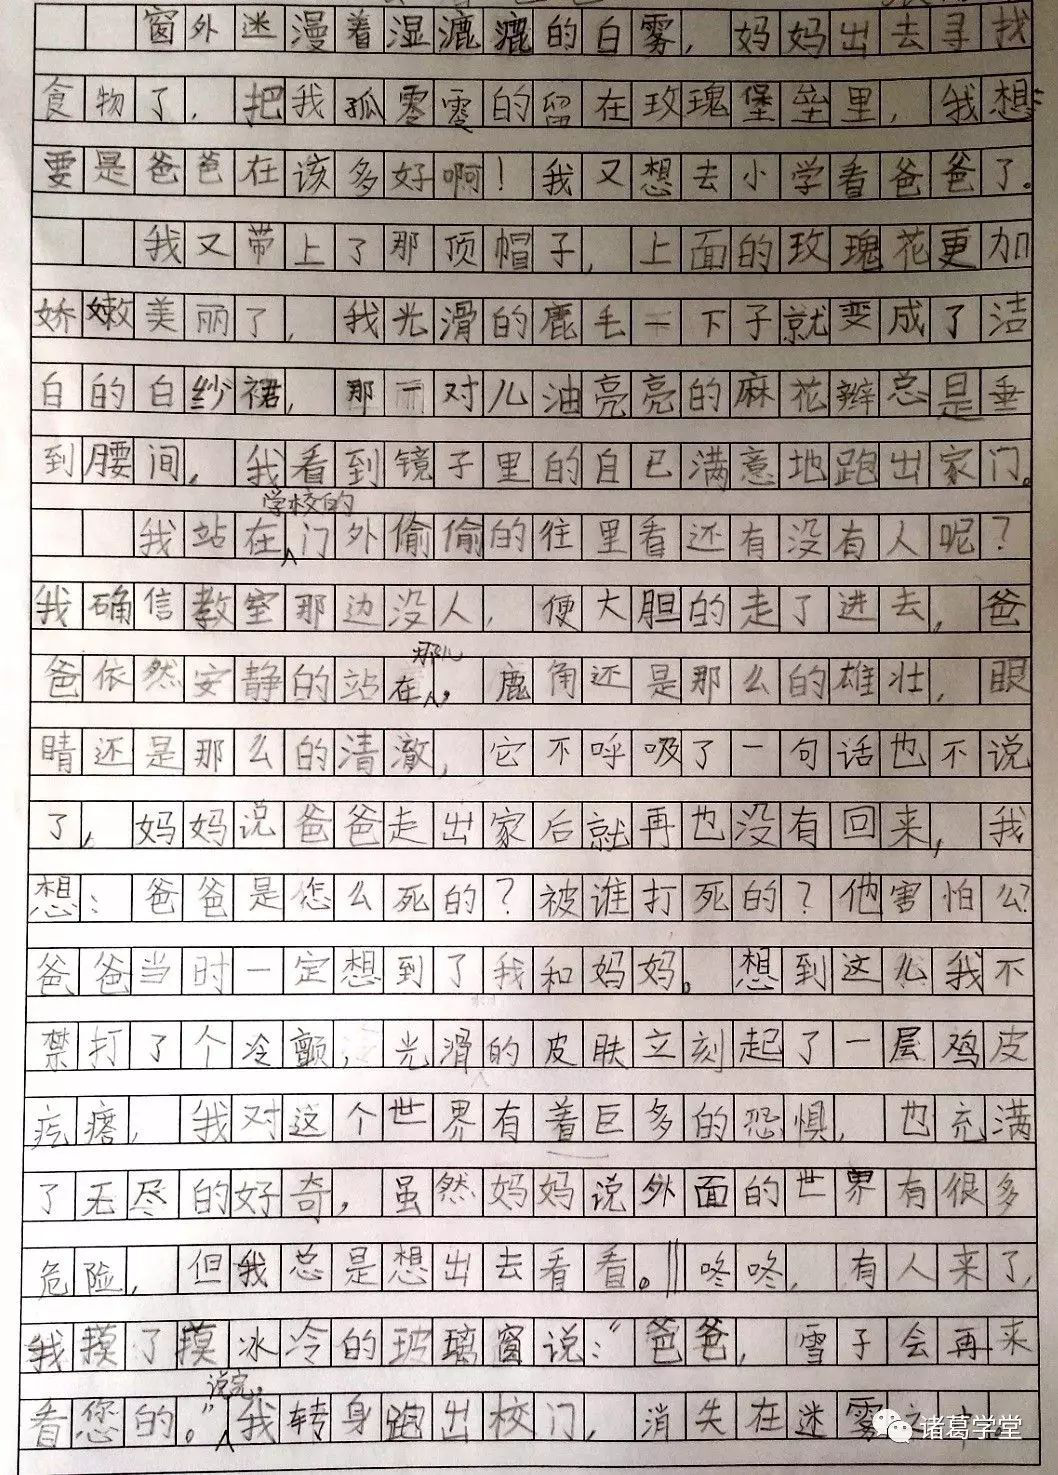 窗外迷漫着湿漉漉的白雾，妈妈出去寻找
食物了，把我孤零零的留在玫瑰堡垒里，我想
要是爸爸在该多好啊！我又想去小学看爸爸了。
我又带上了那顶帽子，上面的玫瑰花更加
娇嫩美丽了，我光滑的鹿毛一下子就变成了洁
白的白纱裙，那一对儿油亮亮的麻花辫总是垂
到腰间，我看到镜子里的自已满意地跑出家门。
学校的
我站在门外偷偷的往里看还有没有人呢？
我确信教室那边没人，便大胆的走了进去，爸
那儿
爸依然安静的站在，鹿角还是那么的雄壮，眼
睛还是那么的清澈，它不呼吸了一句话也不说
了，妈妈说爸爸走出家后就再也没有回来，我
想：爸爸是怎么死的？被谁打死的？他害怕么？
爸爸当时一定想到了我和妈妈。想到这儿我不
禁打了个冷颤，光滑的皮肤立刻起了一层鸡皮
疙瘩，我对这个世界有着巨多的恐惧，也充满
了无尽的好奇，虽然妈妈说外面的世界有很多
危险，但我总是想出去看看。‖咚咚，有人来了，
我摸了摸冰冷的玻璃窗说：“爸爸，雪子会再来
说完，
看您的。”我转身跑出校门，消失在迷雾之中。
诸葛学堂